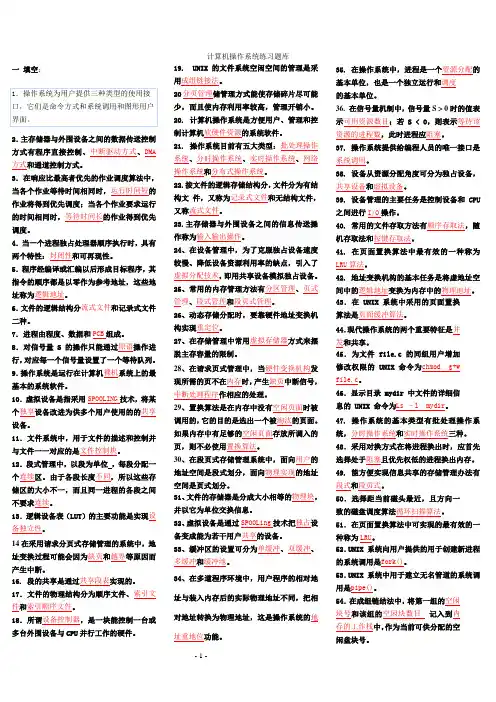 计算机操作系统练习题库
一 填空:
1. 操作系统为用户提供三种类型的使用接
口，它们是命令方式和系统调用和图形用户
界面。
2.主存储器与外围设备之间的数据传送控制
方式有程序直接控制、中断驱动方式、DMA
方式和通道控制方式。
3、在响应比最高者优先的作业调度算法中，
当各个作业等待时间相同时，运行时间短的
作业将得到优先调度；当各个作业要求运行
的时间相同时，等待时间长的作业得到优先
调度。
4、当一个进程独占处理器顺序执行时，具有
两个特性：封闭性和可再现性。
5、程序经编译或汇编以后形成目标程序，其
指令的顺序都是以零作为参考地址，这些地
址称为逻辑地址。
6、文件的逻辑结构分流式文件和记录式文件
二种。
7、进程由程度、数据和PCB组成。
8、对信号量S的操作只能通过原语操作进
行，对应每一个信号量设置了一个等待队列。
9、操作系统是运行在计算机裸机系统上的最
基本的系统软件。
10、虚拟设备是指采用SPOOLING技术，将某
个独享设备改进为供多个用户使用的的共享
设备。
11、文件系统中，用于文件的描述和控制并
与文件一一对应的是文件控制块。
12、段式管理中，以段为单位，每段分配一
个连续区。由于各段长度不同，所以这些存
储区的大小不一，而且同一进程的各段之间
不要求连续。
13、逻辑设备表（LUT）的主要功能是实现设
备独立性。
14在采用请求分页式存储管理的系统中，地
址变换过程可能会因为缺页和越界等原因而
产生中断。
16、段的共享是通过共享段表实现的。
17、文件的物理结构分为顺序文件、索引文
件和索引顺序文件。
18、所谓设备控制器，是一块能控制一台或
多台外围设备与CPU并行工作的硬件。
19. UNIX 的文件系统空闲空间的管理是采
用成组链接法。
20分页管理储管理方式能使存储碎片尽可能
少，而且使内存利用率较高，管理开销小。
20. 计算机操作系统是方便用户、管理和控
制计算机软硬件资源的系统软件。
21. 操作系统目前有五大类型：批处理操作
系统、分时操作系统、实时操作系统、网络
操作系统和分布式操作系统。
22.按文件的逻辑存储结构分，文件分为有结
构文 件，又称为记录式文件和无结构文件，
又称流式文件。
23.主存储器与外围设备之间的信息传送操
作称为输入输出操作。
24、在设备管理中，为了克服独占设备速度
较慢、降低设备资源利用率的缺点，引入了
虚拟分配技术，即用共享设备模拟独占设备。
25、常用的内存管理方法有分区管理、页式
管理、段式管理和段页式管理。
26、动态存储分配时，要靠硬件地址变换机
构实现重定位。
27、在存储管理中常用虚拟存储器方式来摆
脱主存容量的限制。
28、在请求页式管理中，当硬件变换机构发
现所需的页不在内存时，产生缺页中断信号，
中断处理程序作相应的处理。
29、置换算法是在内存中没有空闲页面时被
调用的，它的目的是选出一个被淘汰的页面。
如果内存中有足够的空闲页面存放所调入的
页，则不必使用置换算法。
30、在段页式存储管理系统中，面向用户的
地址空间是段式划分，面向物理实现的地址
空间是页式划分。
31、文件的存储器是分成大小相等的物理块，
并以它为单位交换信息。
32、虚拟设备是通过SPOOLing技术把独占设
备变成能为若干用户共享的设备。
33、缓冲区的设置可分为单缓冲、双缓冲、
多缓冲和缓冲池。
34、在多道程序环境中，用户程序的相对地
址与装入内存后的实际物理地址不同，把相
对地址转换为物理地址，这是操作系统的地
址重地位功能。
35. 在操作系统中，进程是一个资源分配的
基本单位，也是一个独立运行和调度
基本单位。
36. 在信号量机制中，信号量S > 0时的值表
示可用资源数目；若 S < 0，则表示等待该
资源的进程数，此时进程应阻塞。
37、操作系统提供给编程人员的唯一接口是
系统调用。
38、设备从资源分配角度可分为独占设备，
共享设备和虚拟设备。
39、设备管理的主要任务是控制设备和 CPU
之间进行I/O操作。
40、常用的文件存取方法有顺序存取法，随
机存取法和按键存取法。
41、在页面置换算法中最有效的一种称为
LRU算法。
42、地址变换机构的基本任务是将虚地址空
间中的逻辑地址变换为内存中的物理地址。
43、在 UNIX 系统中采用的页面置换
算法是页面缓冲算法。
44、现代操作系统的两个重要特征是并
发和共享。
45、为文件 file.c 的同组用户增加
修改权限的 UNIX 命令为chmod g+w
file.c。
46、显示目录 mydir 中文件的详细信
息的 UNIX 命令为Ls –l mydir。
47、操作系统的基本类型有批处理操作系
统，分时操作系统和实时操作系统三种。
48、采用对换方式在将进程换出时，应首先
选择处于阻塞且优先权低的进程换出内存。
49、能方便实现信息共享的存储管理办法有
段式和段页式。
50、选择距当前磁头最近，且方向一
致的磁盘调度算法循环扫描算法。
51、在页面置换算法中可实现的最有效的一
种称为LRU。
52、UNIX 系统向用户提供的用于创建新进程
的系统调用是fork()。
53、UNIX 系统中用于建立无名管道的系统调
用是pipe()。
54、在成组链结法中，将第一组的空闲
块号和该组的空闲块数目 记入到内
存的工作栈中，作为当前可供分配的空
闲盘块号。
- 1 -